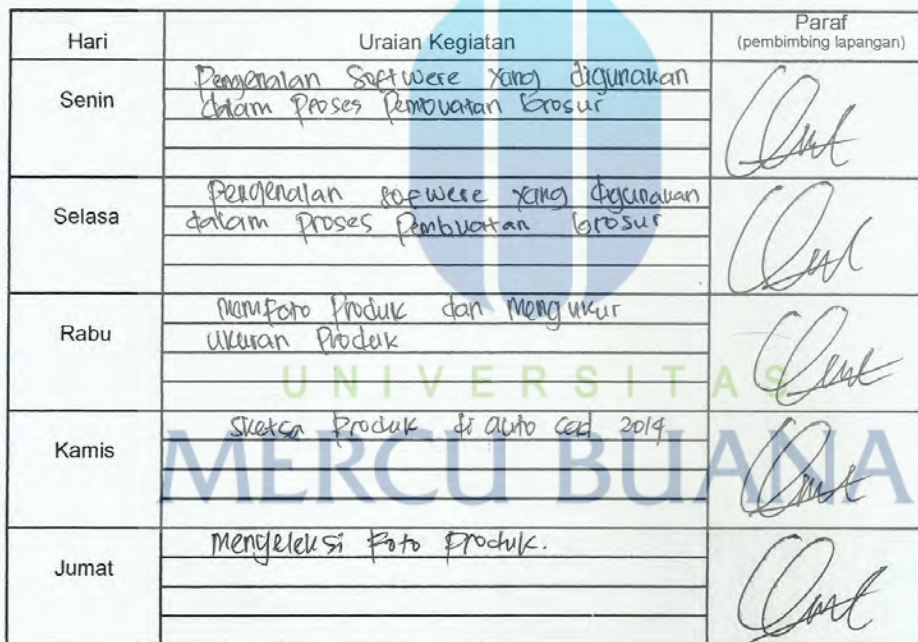 Hari Uraian Kegiatan Paraf
(pembimbing lapangan)
Senin
Pengenalan Software yang digunakan
dalam Proses Pembuatan Brosur
Selasa
Pengenalan sofwere yang digunakan
dalam proses Pembuatan brosur
Rabu
Memfoto Produk dan Mengukur
Ukuran Produk
UNIVERSITAS
Kamis
Sketsa Produk di auto cad 2014
MERCU BUANA
Jumat
Menyeleksi Foto Produk.